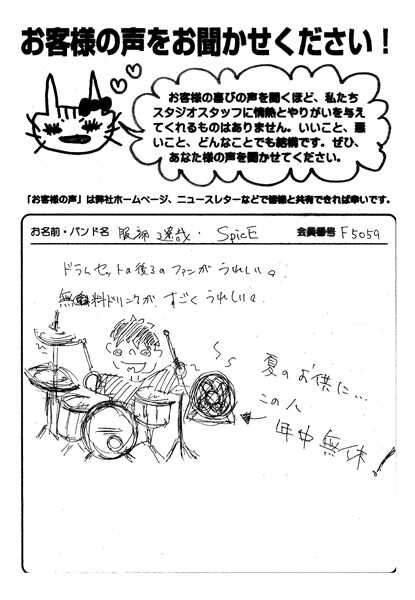 お客様の声をお聞かせください！
お客様の喜びの声を聞くほど、私たち
スタジオスタッフに情熱とやりがいを与え
てくれるものはありません。いいこと、悪
いこと、どんなことでも結構です。ぜひ、
あなた様の声を聞かせてください。
「お客様の声」は弊社ホームページ、ニュースレターなどで皆様と共有できれば幸いです。
お名前・バンド名 服部 哉・SpicE 会員番号 F5059
ドラムセットの後ろのファンがうれしい。
無料ドリンクがすごくうれしい。
夏のお供に…
この人
年中無休！